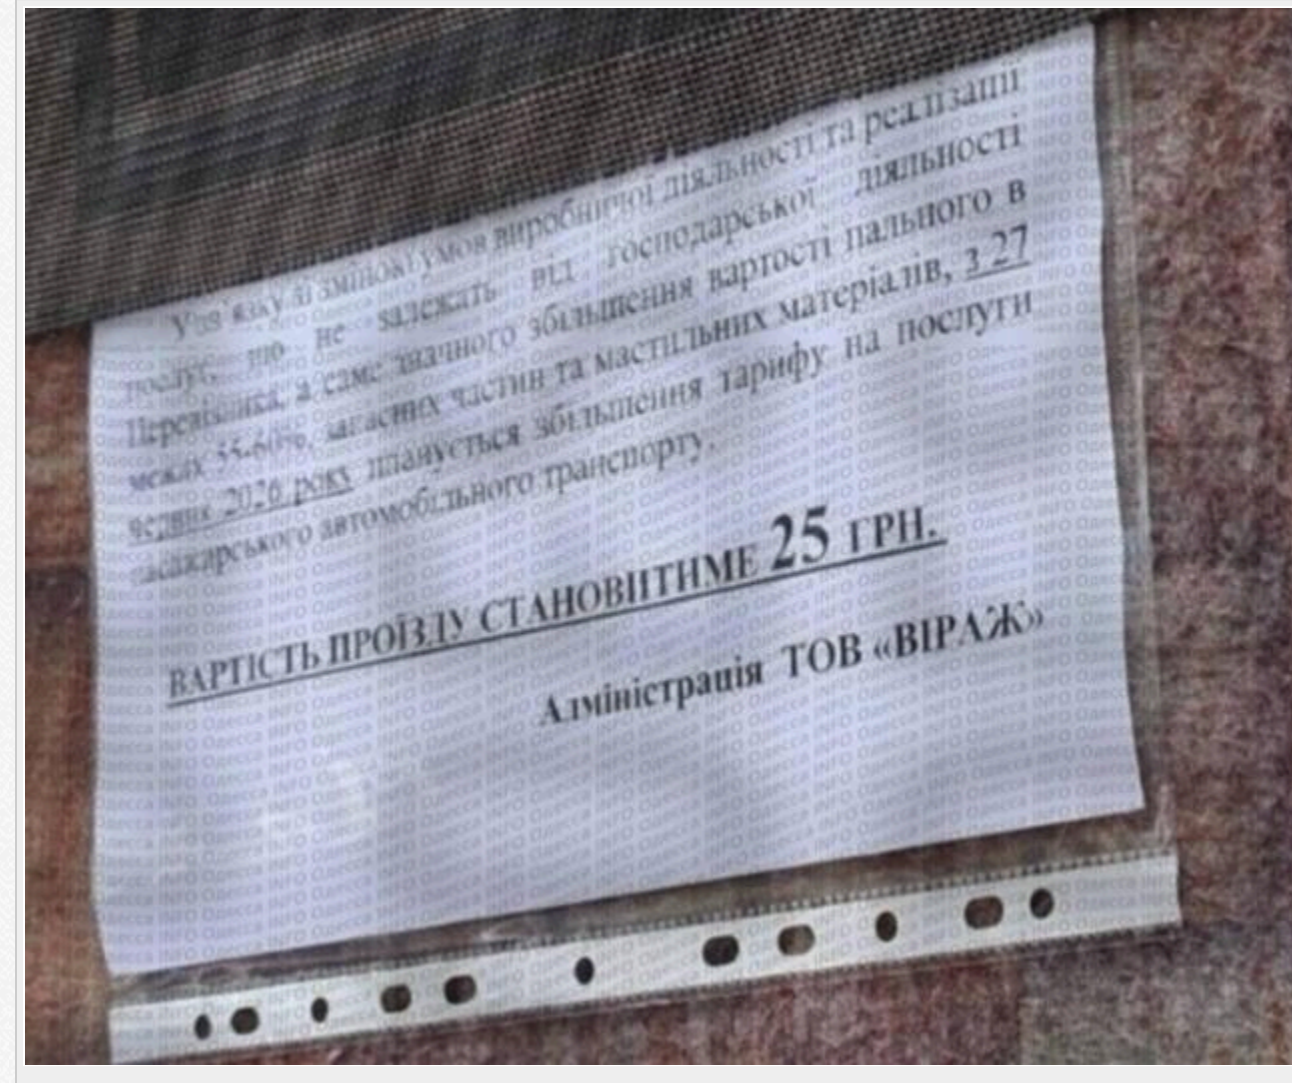 У зв'язку зі зміною умов виробничої діяльності та реалізації
послуг, що не залежать від господарської діяльності
Перевізника, а саме значного збільшення вартості пального в
межах 55-60%, запасних частин та мастильних матеріалів, з 27
2026 року планується збільшення тарифу на послуги
пасажирського автомобільного транспорту.
ВАРТІСТЬ ПРОЇЗДУ СТАНОВИТИМЕ 25 ГРН.
Адміністрація ТОВ «ВІРАЖ»